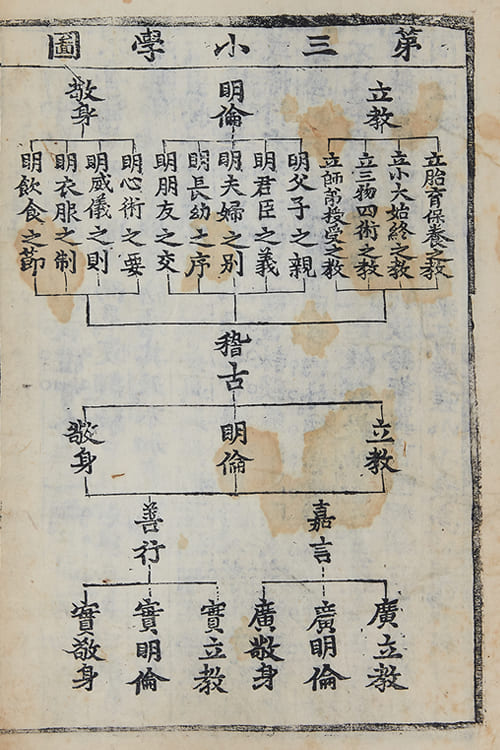 第三小學圖
立教
立胎育保養之教
立小大始終之教
立三物四術之教
立師弟授受之教
明倫
明父子之親
明君臣之義
明夫婦之別
明長幼之序
明朋友之交
敬身
明心術之要
明威儀之則
明衣服之制
明飲食之節
稽古
立教
明倫
敬身
嘉言
廣立教
廣明倫
廣敬身
善行
實立教
實明倫
實敬身